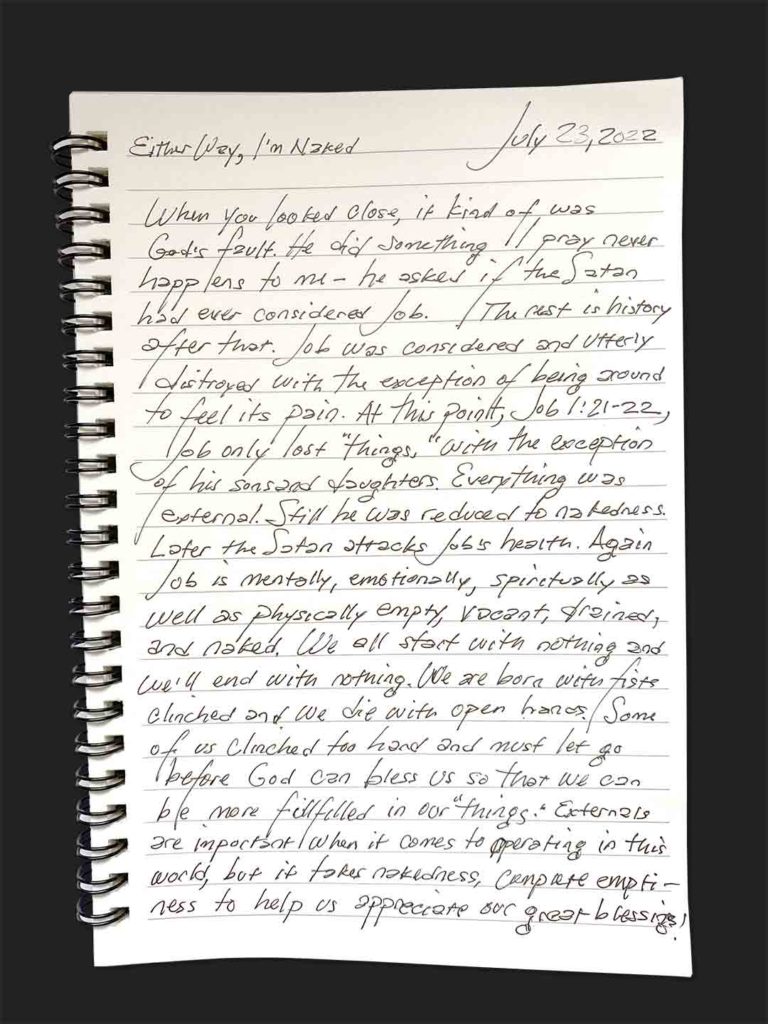 Either Way, I'm Naked July 23, 2022
When you looked close, it kind of was
God's fault. He did something I pray never
happens to me - he asked if the Satan
had ever considered Job. The rest is history
after that. Job was considered and utterly
distroyed with the exception of being around
to feel its pain. At this point, Job 1:21-22,
Job only lost "things," with the exception
of his sons and daughters. Everything was
external. Still he was reduced to nakedness.
Later the Satan attacks Job's health. Again
Job is mentally, emotionally, spiritually as
well as physically empty, vacant, drained,
and naked. We all start with nothing and
we'll end with nothing. We are born with fists
clinched and we die with open hands. Some
of us clinched too hard and must let go
before God can bless us so that we can
be more fillfilled in our "things." Externals
are important when it comes to operating in this
world, but it takes nakedness, complete empti-
ness to help us appreciate our great blessings!